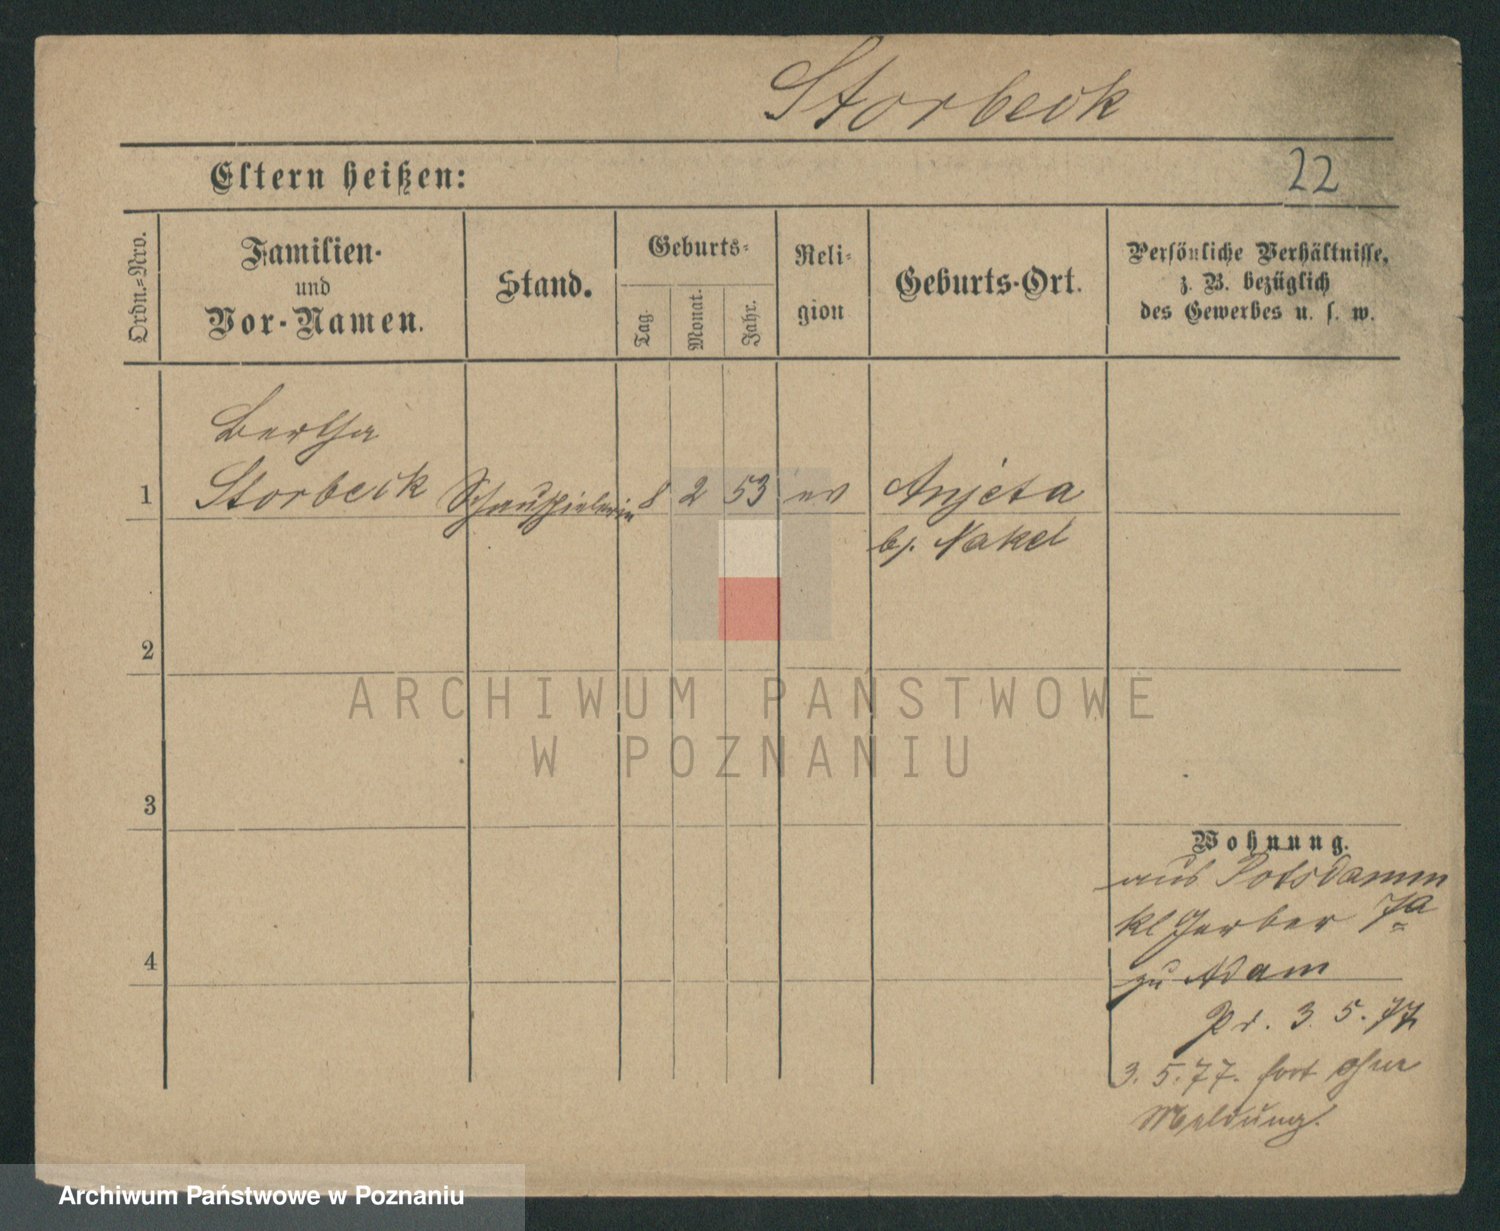 Storbeck
Eltern heißen:
22
Ordn.-Nro.
Familien-
und
Vor-Namen.
Stand.
Geburts-
Tag.
Monat.
Jahr.
Reli-
gion
Geburts-Ort.
Persönliche Verhältnisse,
z. B. bezüglich
des Gewerbes u. s. w.
Bertha
1 Storbeck Schauspielerin 8 2 53 ev Anjeta
b/. Nakel
2
ARCHIWUM PAŃSTWOWE
W POZNANIU
3
Wohnung.
aus Potsdamm
kl Gerber 7a
4
zu Adam
Pr. 3. 5. 77
3. 5. 77. fort ohne
Meldung.
Archiwum Państwowe w Poznaniu